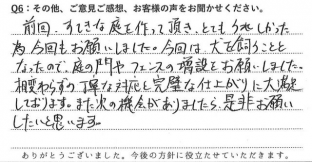 Q6：その他、ご意見ご感想、お客様の声をお聞かせください。
前回、すてきな庭を作って頂き、とてもうれしかった
為今回もお願いしました。今回は、犬を飼うことと
なったので、庭の門やフェンスの増設をお願いしました。
相変わらずの丁寧な対応と完璧な仕上がりに大満足
しております。また次の機会がありましたら、是非お願い
したいと思います。
ありがとうございました。今後の方針に役立たせていただきます。